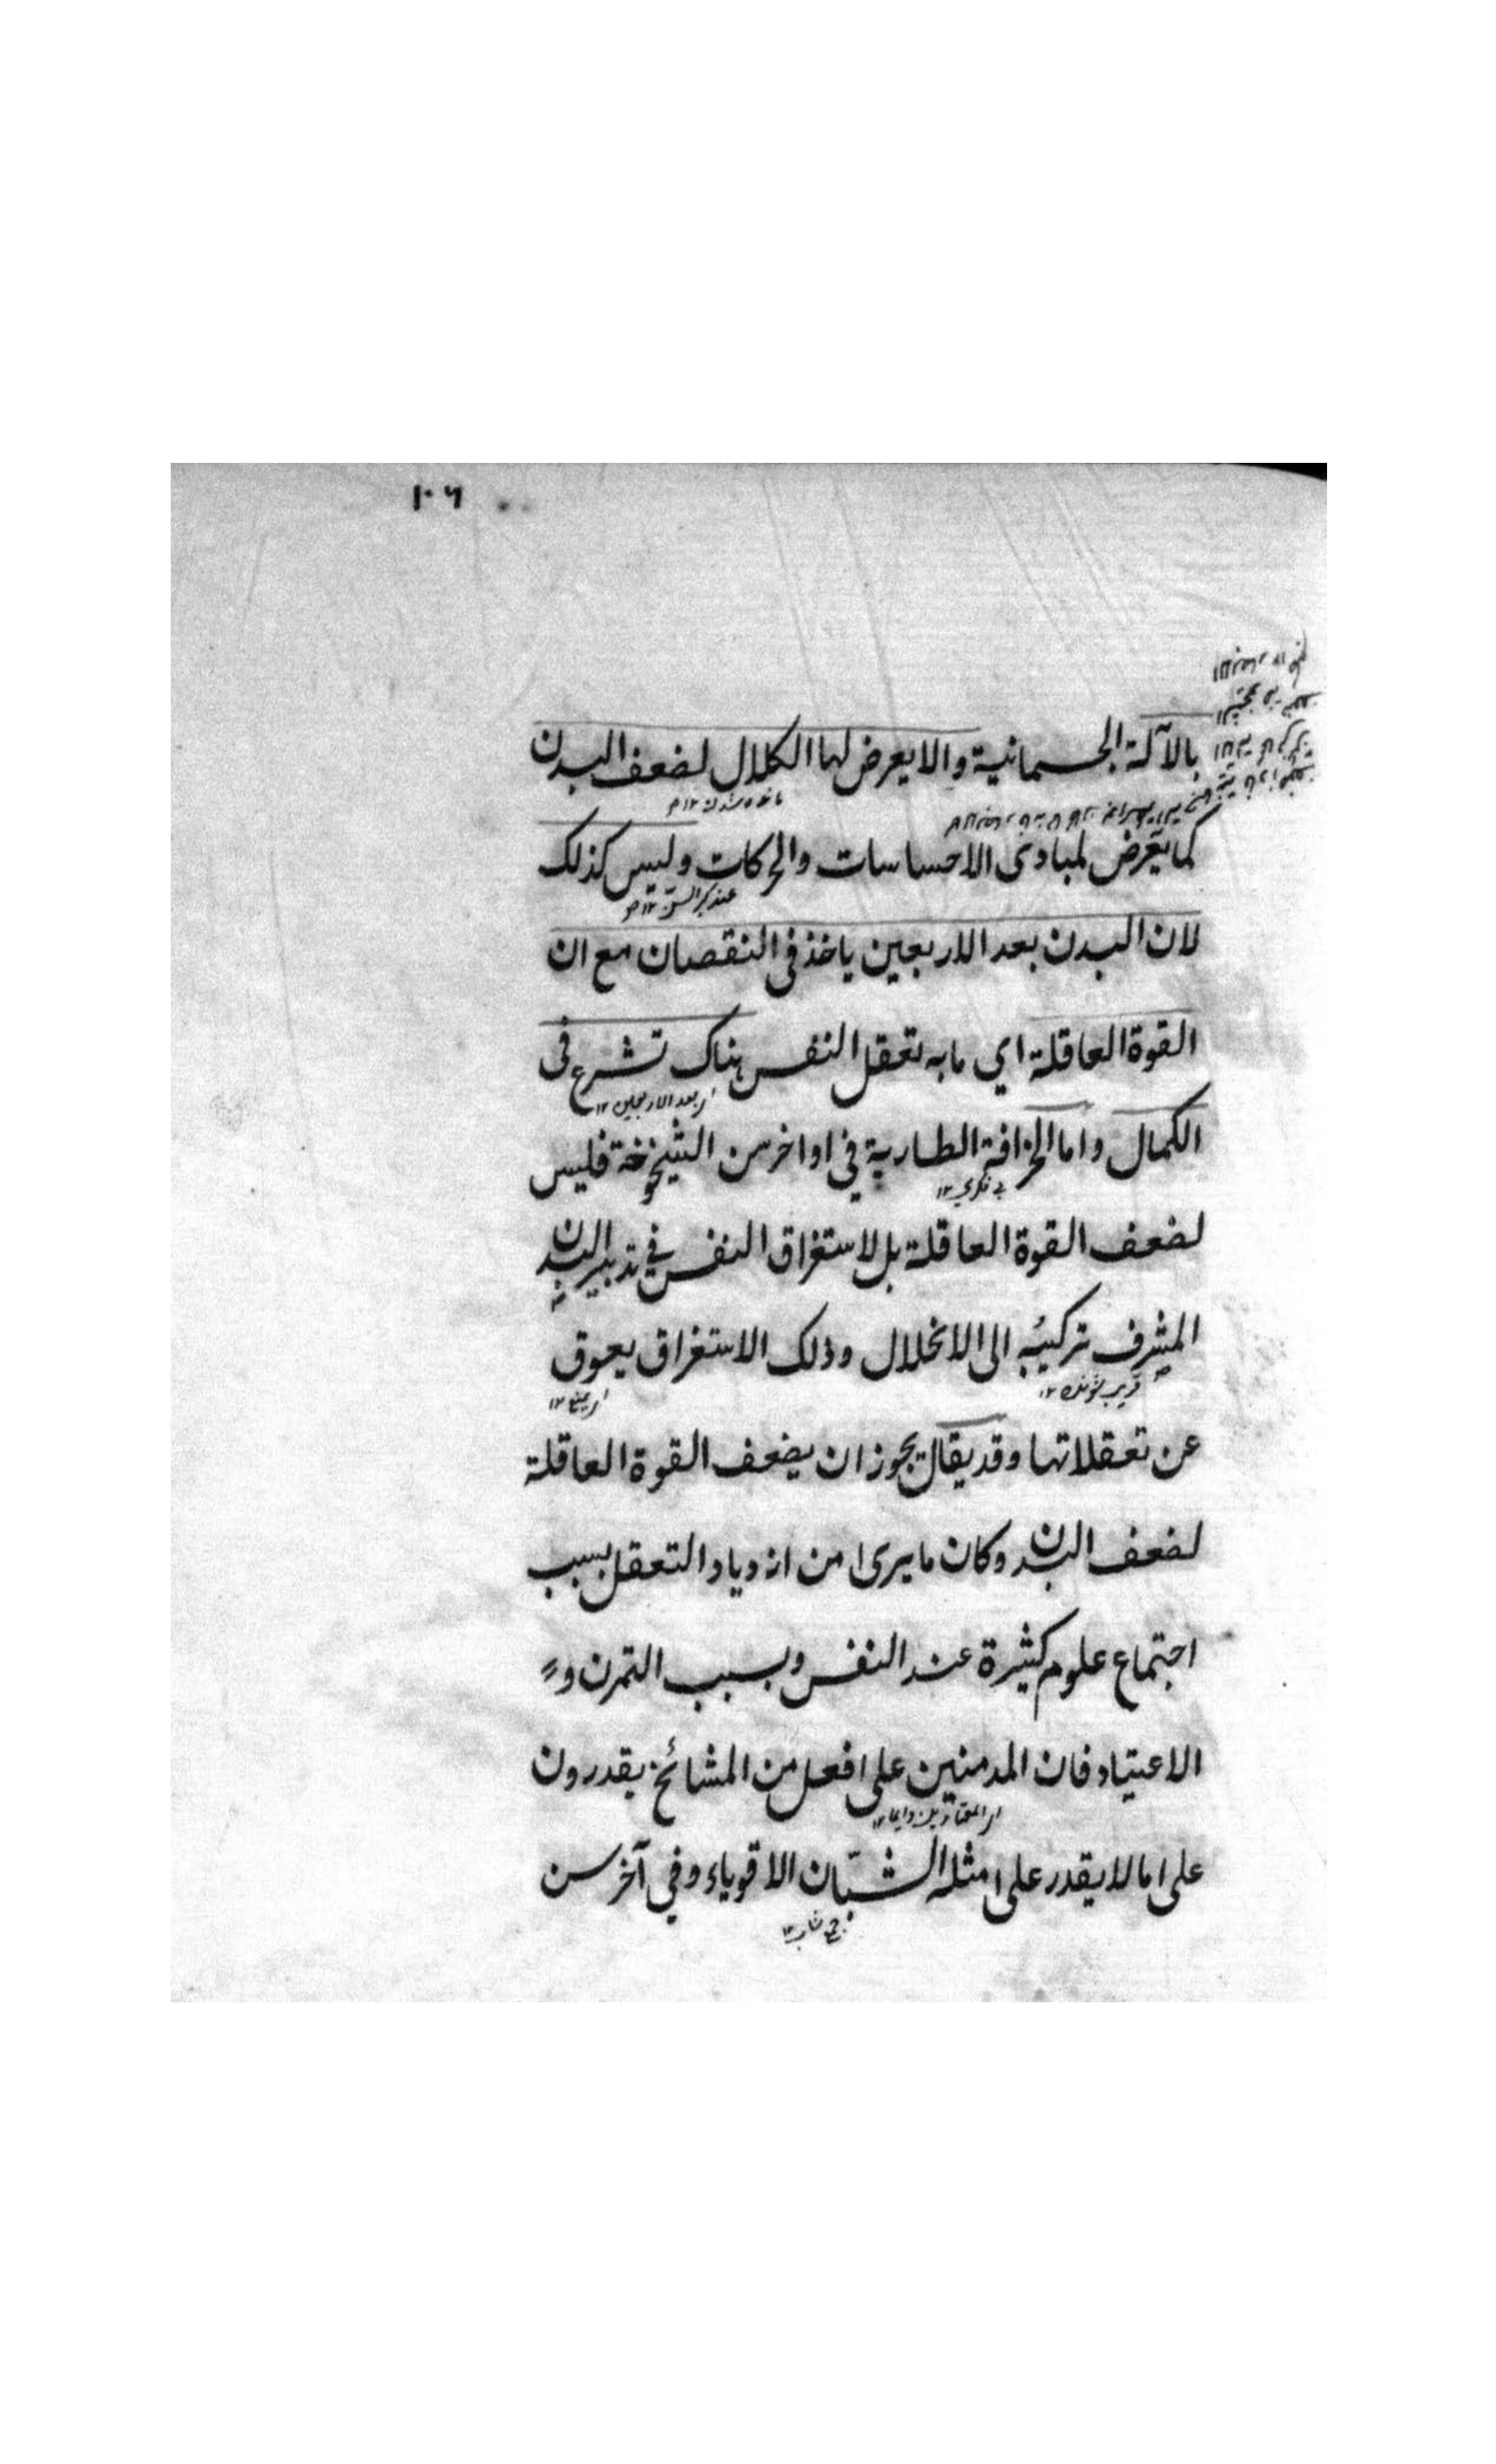 ١٠٦
بالآلة الجسمانية والا يعرض لها الكلال لضعف البدن
مانده شدن ١٢ م
كما يعرض لمبادى الاحساسات والحركات وليس كذلك
عند كبر السن ١٢ م
لان البدن بعد الاربعين ياخذ فى النقصان مع ان
القوة العاقلة اي ما به تعقل النفس هناك تشرع فى
اى بعد الاربعين ١٢
الكمال واما الخرافة الطارية في اواخر سن الشيخوخة فليس
لضعف القوة العاقلة بل لاستغراق النفس في تدبير البدن
المشرف تركيبه الى الانحلال وذلك الاستغراق يعوق
قريب شونده ١٢
اى يمنع ١٢
عن تعقلاتها وقد يقال يجوز ان يضعف القوة العاقلة
لضعف البدن وكان ما يرى من ازدياد التعقل بسبب
اجتماع علوم كثيرة عند النفس وبسبب التمرن و
الاعتياد فان المدمنين على افعل من المشائخ يقدرون
على ما لا يقدر على مثله الشبان الاقوياء وفي آخر سن
جمع شاب ١٢